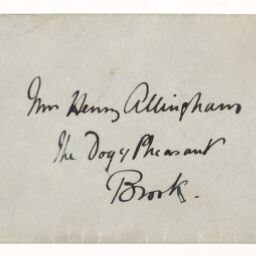 Mrs Henry Allingham
The Dog & Pheasant
Brook.